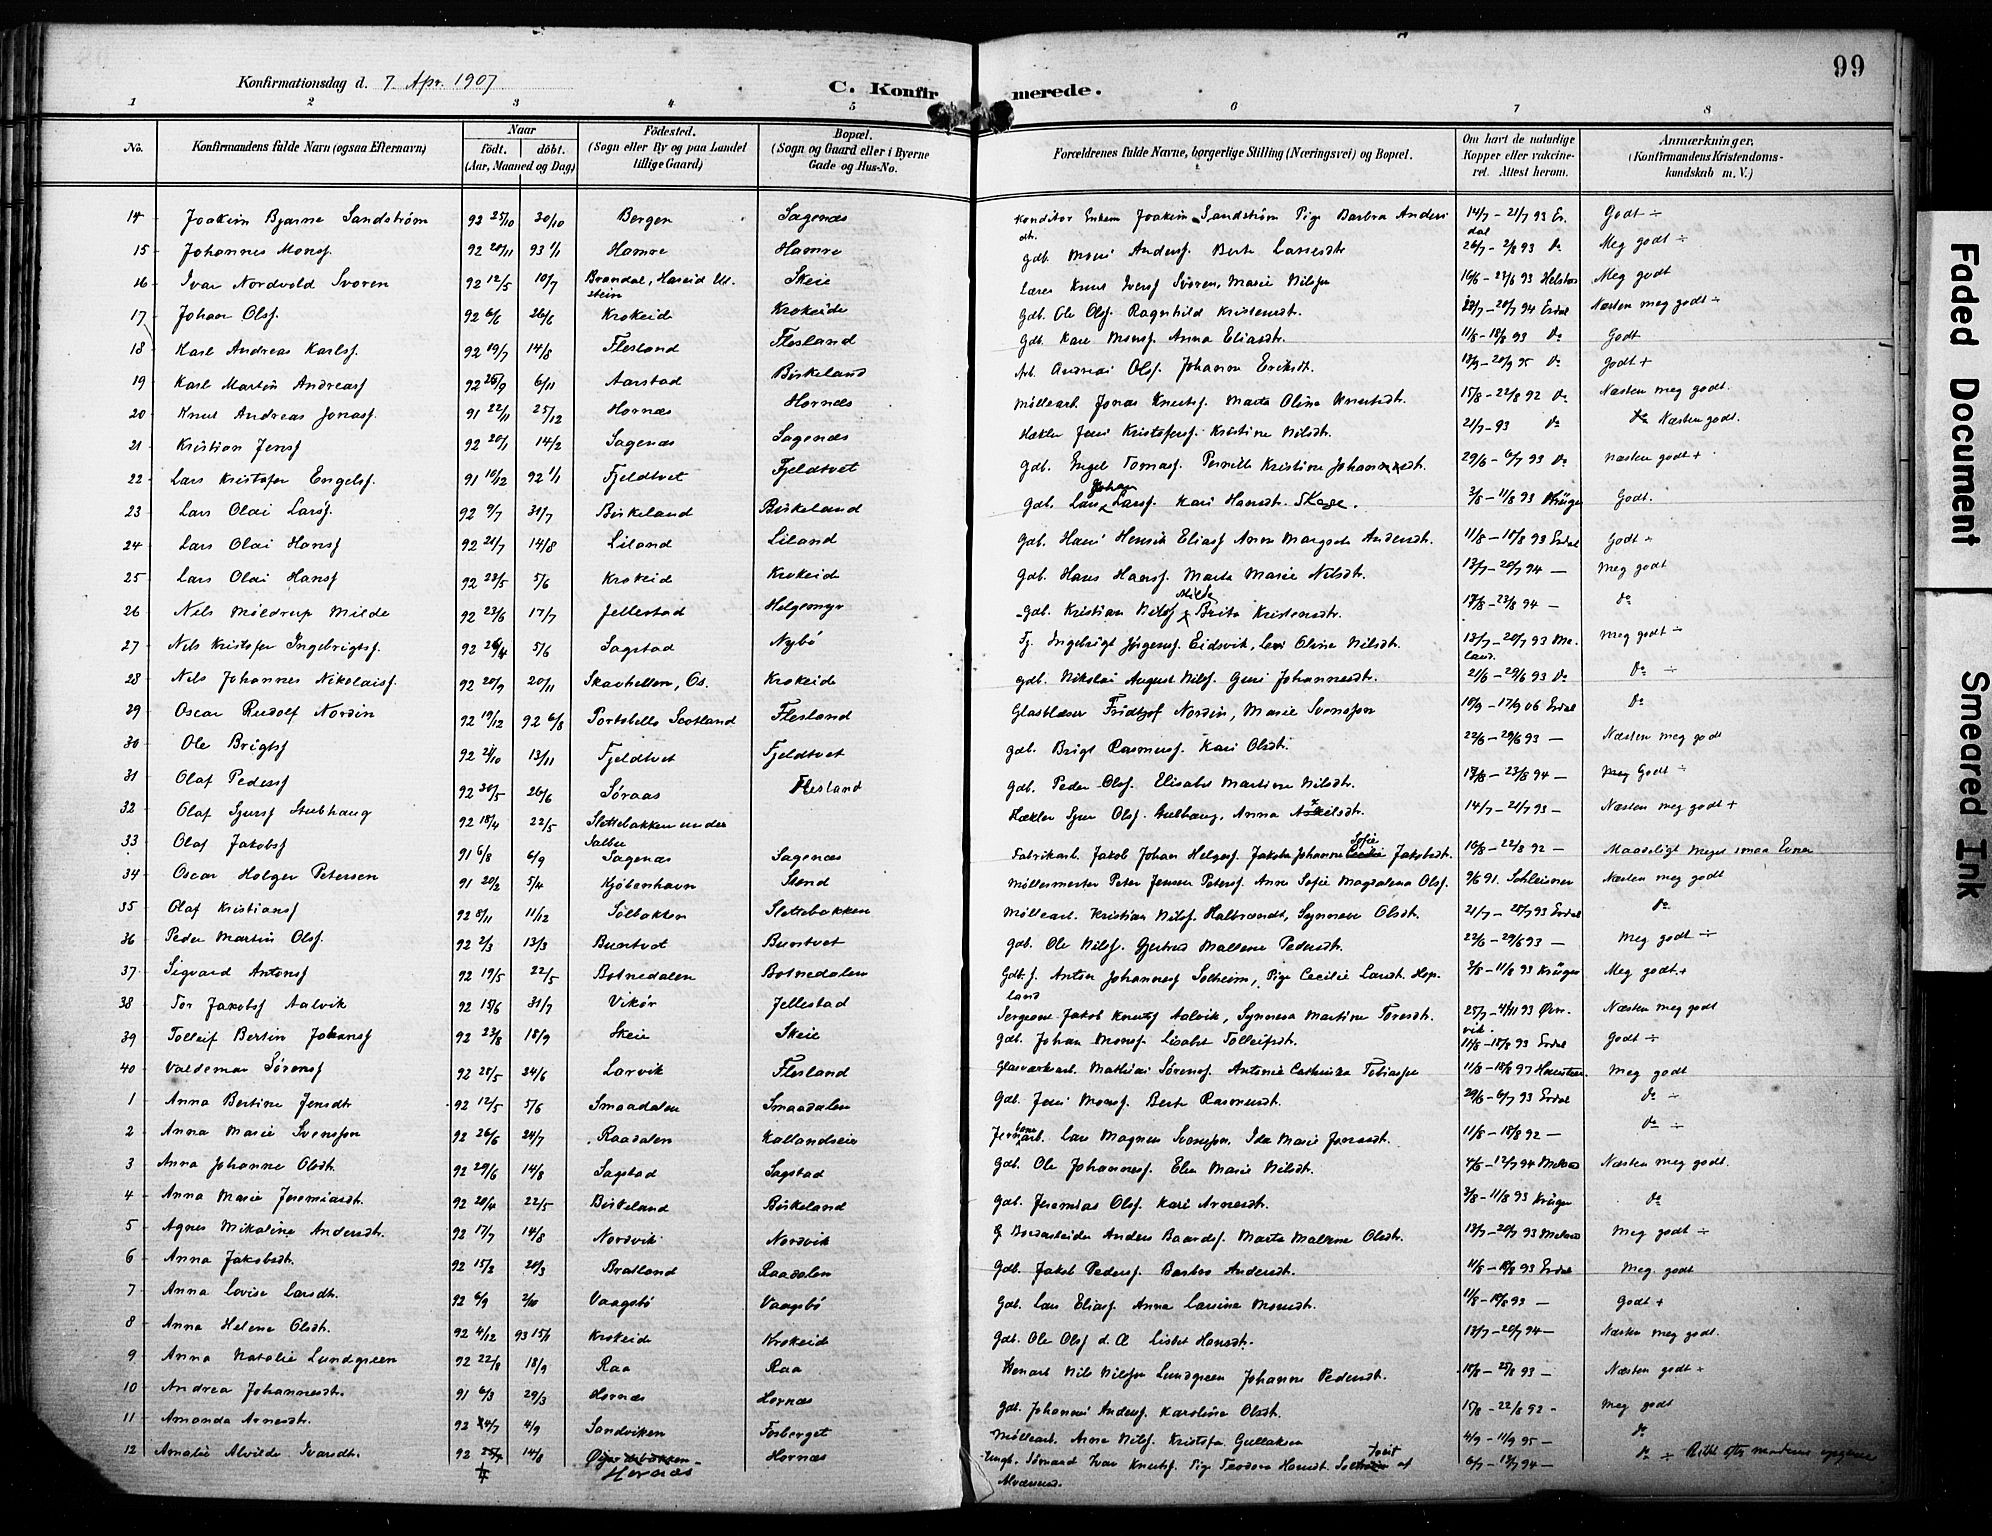 99
Konfirmationsdag d. 7. Apr. 1907
C. Konfirmerede.
1 2 3 4 5 6 7 8
No. Konfirmandens fulde Navn (ogsaa Efternavn) Naar født. døbt. (Aar, Maaned og Dag) Fødested. (Sogn eller By og paa Landet tillige Gaard) Bopæl. (Sogn og Gaard eller i Byerne Gade og Hus-No. Forældrenes fulde Navne, borgerlige Stilling (Næringsvei) og Bopæl. Om havt de naturlige Kopper eller vakcineret. Attest herom. Anmærkninger. (Konfirmandens Kristendomskundskab m. V.)
14 Joakim Bjarne Sandstrøm 92 25/10 30/10 Bergen Sagenæs Konditor Enkem Joakim Sandstrøm Pige Barbra Andersdtr. 14/7 - 21/7 93 Erdal Godt ÷
15 Johannes Monsf. 92 20/11 93 1/1 Hamre Hamre Gdb. Mons Andersf. Berte Larsesdtr 26/7 - 2/8 93 Do Meg godt ÷
16 Ivar Nordvold Svoren 92 12/5 10/7 Brandal, Hareid Ulstein Skeie Lærer Knut Iversf Svoren, Marie Nilsen 16/6 - 23/6 93 Meg godt
17 Johan Olsf. 92 6/6 26/6 Krokeide Krokeide Gdb. Ole Olsf. Ragnhild Kristensdtr. 20/7 94 Erdal Næsten meg godt ÷
18 Karl Andreas Karlsf. 92 19/7 14/8 Flesland Flesland Gdb. Karl Monsf. Anna Eliasdtr. 11/8 - 18/8 93 Do Godt
19 Karl Martin Andreasf 92 25/9 6/11 Aarstad Birkeland Arb. Andreas Olsf. Johanna Eriksdtr. 13/9 - 20/9 95 Do Godt +
20 Knut Andreas Jonasf. 91 22/11 25/12 Hornæs Hornæs Møllearb. Jonas Knutsf. Marta Oline Knutsdtr. 15/8 - 22/8 92 Do Næsten meg godt.
21 Kristian Jensf 92 20/1 14/2 Sagenæs Sagenæs Hækler Jens Kristofersf. Kristine Nilsdtr. 21/7 - 93 Do Næsten godt.
22 Lars Kristofer Engelsf. 91 10/12 92 1/1 Fjeldtvet Fjeldtvet Gdb. Engel Tomasf. Pernille Kristine Johannesdtr. 29/6 - 6/7 93 Do Næsten godt +
23 Lars Olai Larsf. 92 9/7 31/7 Birkeland Birkeland Gdb. Lars Johan Larsf. Kari Hansdtr. Skage. 3/8 - 11/8 93 Krüger Godt.
24 Lars Olai Hansf 92 21/7 14/8 Liland Liland Gdb. Hans Henrik Eliasf Anna Margreta Andersdtr. 11/8 - 18/8 93 Erdal Godt ÷
25 Lars Olai Hansf 92 23/5 5/6 Krokeid Krokeid Gdb. Hans Hansf. Marta Marie Nilsdtr. 13/7 - 20/7 94 — Meg godt
26 Nils Møldrup Milde 92 23/6 17/7 Jellestad Helgemyr Gdb. Kristian Nilsf Milde Brita Kristensdtr. 23/8 94 — Do
27 Nils Kristofer Ingebrigtsf. 92 26/4 5/6 Sagstad Nybø Tj. Ingebrigt Jørgensf. Eidsvik, Oline Nilsdtr. 13/7 - 20/7 93 Meland. Meg godt ÷
28 Nils Johannes Nikolaisf. 92 20/9 20/11 Skarhellen, Os. Krokeid Gdb. Nikolai August Nilsf. Guri Johannesdtr. 21/6 - 29/6 93 Do Do ÷
29 Oscar Rudolf Nordin 92 19/12 92 6/8 Portobello Scotland Flesland Glasblæser Fridtjof Nordin, Marie Svensson 10/9 - 17/9 06 Erdal Do
30 Ole Brigtsf 92 21/10 13/11 Fjeldtvet Fjeldtvet Gdb. Brigt Rasmusf. Kari Olsdtr. 22/6 - 29/6 93 — Næsten meg godt
31 Olaf Pedersf 92 30/5 26/6 Søraas Flesland Gdb. Peder Olsf. Elisabet Martine Nilsdtr. 23/8 94 — Meg Godt ÷
32 Olaf Sjursf Stubhaug 92 18/4 22/5 Slettebakken under Salbu Hækler Sjur Olsf. Anna 14/7 - 21/7 93 — Næsten meg godt +
33 Olaf Jakobsf 91 6/8 6/9 Sagenæs Sagenæs Fabrikarb. Jakob Johan Helgesf. Jakoba Johanne Sofie Jakobsdtr. 16/8 - 22/8 92 — Maadeligt meget smaa Evner
34 Oscar Holger Petersen 91 20/2 5/4 Kjøbenhavn Stend Møllemester Peter Jensen Petersf. Anna Sofie Magdalena Olsf. 9/6 91. Schleisner Næsten meg godt
35 Olaf Kristiansf 92 8/11 11/12 Sølbakken Slettebakken Møllearb. Kristian Nilsf. Halbrændt, Synneve Olsdtr. 21/7 - 28/7 93 Erdal Do
36 Peder Martin Olsf. 92 2/3 13/3 Burstvet Burstvet Gdb. Ole Nilsf. Gjertrud Mallene Pedersdtr. 22/6 - 29/6 93 — Meg godt ÷
37 Sigvard Antonsf 92 19/5 22/5 Botnedalen Botnedalen Gdb.f. Anton Johannesf Solheim, Pige Cecilie Larsdtr. Hopland 3/8 - 11/8 93 Krüger Meg godt +
38 Tor Jakobsf Aalvik 92 15/6 31/7 Vikør Jellestad Sergeant Jakob Knutsf Aalvik, Synneva Martine Toresdtr. 25/7 - 4/11 93 Næsten meg godt
39 Tolleif Bertin Johansf 92 23/8 18/9 Skeie Skeie Gdb. Johan Monsf. Lisabet Tolleifsdtr. 11/8 - 18/8 93 Erdal Godt ÷
40 Valdemar Sørensf 92 28/5 24/6 Larvik Flesland Glasværksarb. Mathias Sørensf. Antonie Cathinka Tobiassen 11/8 - 18/8 97 Meg godt
1 Anna Bertine Jensdtr 92 12/5 5/6 Smaadalen Smaadalen Gdb. Jens Monsf. Berte Rasmusdtr. 29/6 - 6/7 93 Erdal Do ÷
2 Anna Marie Svensson 92 26/6 24/7 Raadalen Kallandseie Jernbanearb. Lars Magnus Svensson. Ida Marie Jonasdtr. 11/8 - 18/8 92 — Do ÷
3 Anna Johanne Olsdtr. 92 29/6 14/8 Sagstad Sagstad Gdb. Ole Johannesf. Elen Marie Nilsdtr. 12/7 94 Meland Næsten meg godt.
4 Anna Marie Jeremiasdtr. 92 20/4 22/5 Birkeland Birkeland Gdb. Jeremias Olsf. Kari Arnesdtr. 3/8 - 11/8 93 Krüger Do
5 Agnes Mikaline Andersdtr. 92 17/7 14/8 Nordvik Nordvik Anders Baardsf. Marta Malene Olsdtr. 13/7 - 20/7 93 Meland Meg godt ÷
6 Anna Jakobsdtr. 92 15/2 20/3 Bratland Raadalen Gdb. Jakob Pedersf. Barbro Andersdtr. 11/8 - 18/8 93 Erdal Meg godt
7 Anna Lovise Larsdtr. 92 6/9 2/10 Vaagsbø Vaagsbø Gdb. Lars Eliasf. Anna Larsine Monsdtr. 11/8 - 18/8 93 — Godt +
8 Anna Helene Olsdtr. 92 4/12 93 15/1 Krokeid Krokeid Gdb. Ole Olsf d. Æ Lisbet Hansdtr. 13/7 - 20/7 94 — Næsten meg godt.
9 Anna Natalie Lundgreen 92 22/8 18/9 Raa Raa Nils Nilsson Lundgreen Johanne Pedersdtr. 18/8 - 25/8 93 — Næsten godt +
10 Andrea Johannesdtr. 91 6/3 29/3 Hornæs Hornæs Gdb. Johannes Andersf. Karoline Olsdtr. 15/8 - 22/8 92 - Meg godt
11 Amanda Arnesdtr. 92 24/7 4/9 Sandviken Fosberget Møllearb. Arne Nilsf. Kristofa Gullaksen 4/9 - 11/9 95 — Do
12 Amalie Alvilde Ivarsdtr. 92 14/8 Hornæs Hornæs Ungk. Edmard Ivar Knutsf. Pige Teodora Hansdtr. Tveit af Alversund. 6/7 - 13/7 94 — Do ÷
Faded Document
Smeared Ink